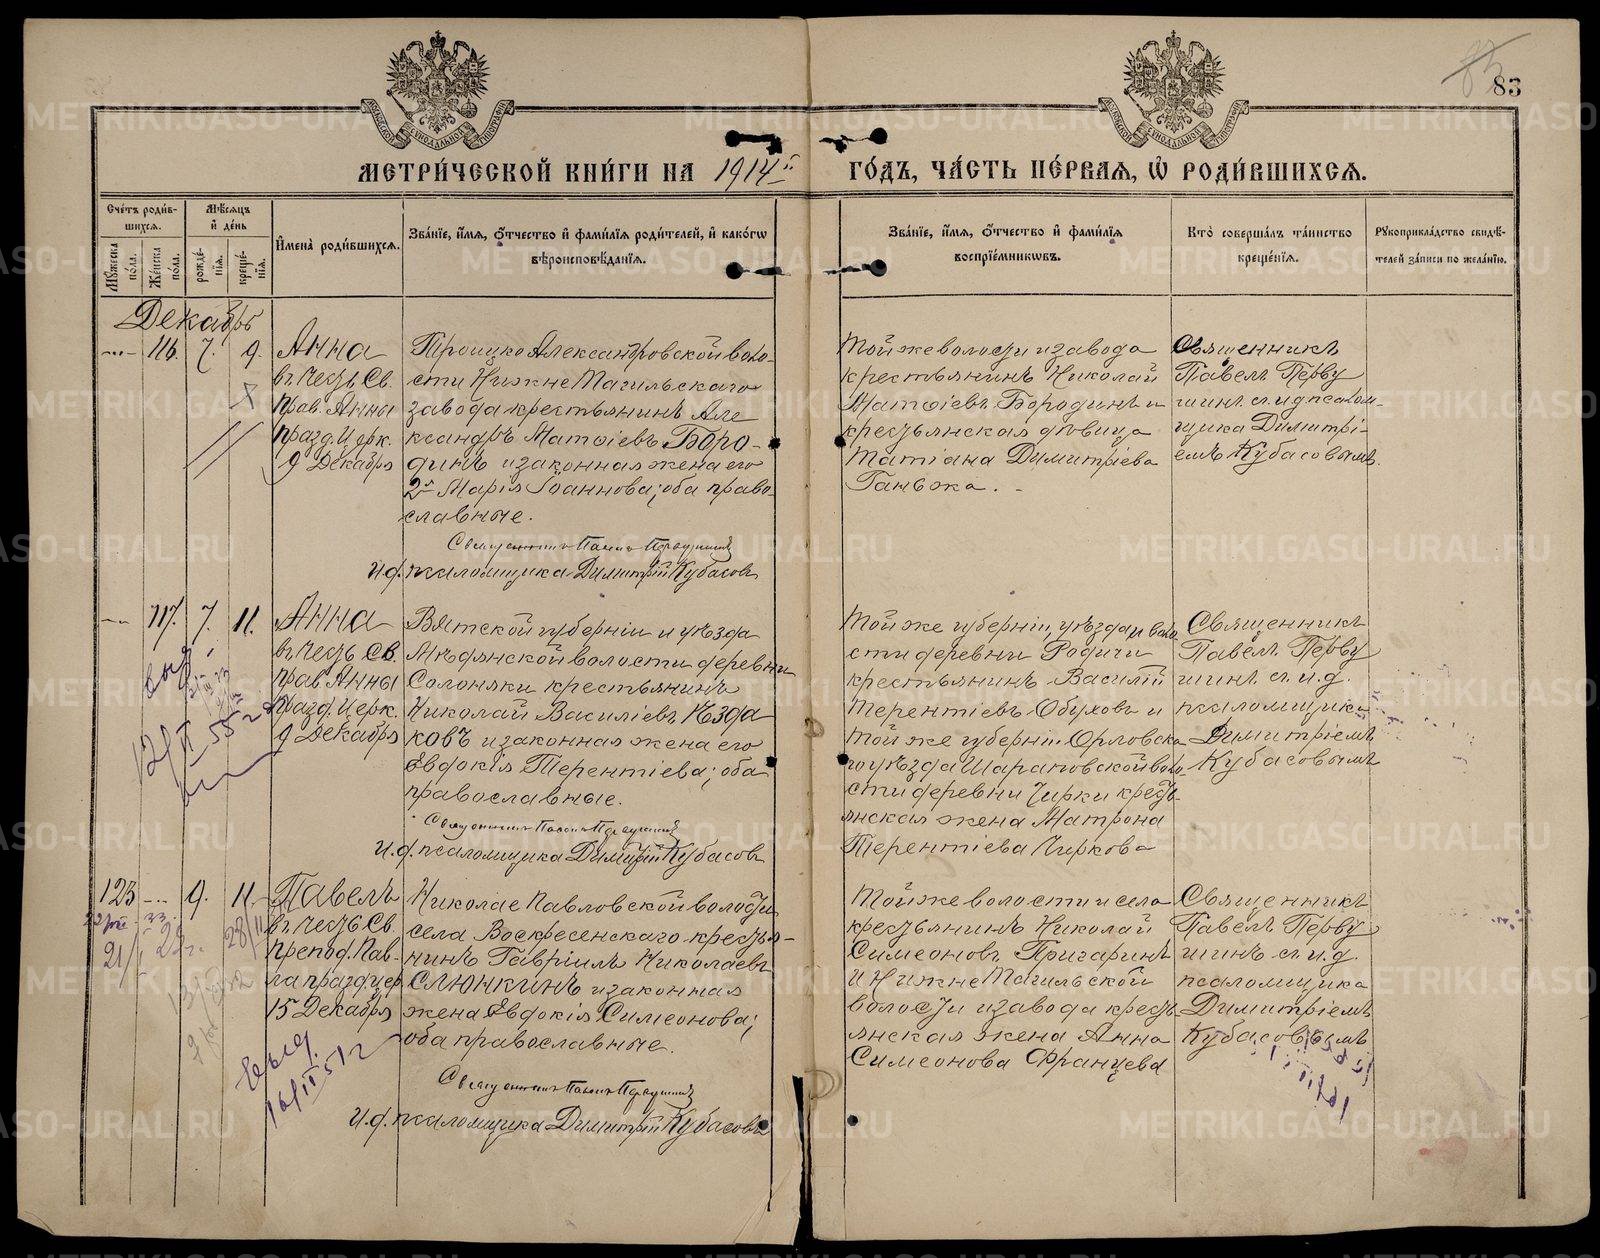 83
МЕТРИ́ЧЕСКОЙ КНИ́ГИ НА 1914 й ГО́ДЪ, ЧА́СТЬ ПЕ́РВАѦ, Ѡ РОДИ́ВШИХСѦ.
Сче́тъ роди́в-
шихся.
Мѣ́сѧцъ
и҆ де́нь
Мꙋ́жеска по́ла.
Же́нска по́ла.
рожде́-
нїѧ.
креще́-
нїѧ.
И҆мена̀ роди́вшихсѧ.
Зва́нїе, и҆́мѧ, ѻ҆́тчество и҆ фами́лїѧ роди́телей, и҆ како́гѡ
вѣроисповѣ́данїѧ.
Зва́нїе, и҆́мѧ, ѻ҆́тчество и҆ фами́лїѧ
воспрїе́мникѡвъ.
Кто̀ соверша́лъ та́инство
креще́нїѧ.
Рꙋкоприкла́дство свидѣ́-
телей за́писи по жела́нїю.
Декабрь
116. 7. 9.
Анна
въ честь Св.
прав. Анны
празд. Церк.
9 Декабря
Троицко Александровской воло-
сти Нижне Тагильскаго
завода крестьянинъ Але
ксандръ Матѳіевъ Боро-
динъ и законная жена его
Марія Іоаннова; оба право-
славные.
Священникъ Павелъ Первушинъ
И.д. псаломщика Димитрій Кубасовъ
Той же волости и завода
крестьянинъ Николай
Матѳіевъ Бородинъ и
крестьянская дѣвица
Татіана Димитріева
Ганьжа.
Священникъ
Павелъ Перву
шинъ съ и.д. псалом-
щика Димитрі-
емъ Кубасовымъ.
117. 7. 11.
Анна
въ честь Св.
прав. Анны
празд. Церк.
9 Декабря
Вятской губерніи и уѣзда
Мѣдянской волости деревни
Солоняки крестьянинъ
Николай Василіевъ Ѣзда
ковъ и законная жена его
Евдокія Терентіева; оба
православные.
Священникъ Павелъ Первушинъ
И.д. псаломщика Димитрій Кубасовъ
Той же губерніи, уѣзда и воло
сти деревни Родичи
крестьянинъ Василій
Терентіевъ Обуховъ и
той же губерніи Орловска
го уѣзда Шараповской воло-
сти деревни Чирки кресть-
янская жена Матрона
Терентіева Чиркова
Священникъ
Павелъ Перву
шинъ съ и.д.
псаломщика
Димитріемъ
Кубасовымъ
123 9. 11.
Павелъ
въ честь Св.
препод. Пав-
ла празд. цер.
15 Декабря
Николае Павловской волости
села Воскресенскаго кресть-
нинъ Гавріилъ Николаевъ
Слюнкинъ и законная
жена Евдокія Симеонова;
оба православные.
Священникъ Павелъ Первушинъ
И.д. псаломщика Димитрій Кубасовъ
Той же волости и села
крестьянинъ Николай
Симеоновъ Пригаринъ
и Нижне Тагильской
волости и завода кресть
янская жена Анна
Симеонова Францева
Священникъ
Павелъ Перву
шинъ съ и.д.
псаломщика
Димитріемъ
Кубасовымъ
16/II 51 г
METRIKI.GASO-URAL.RU